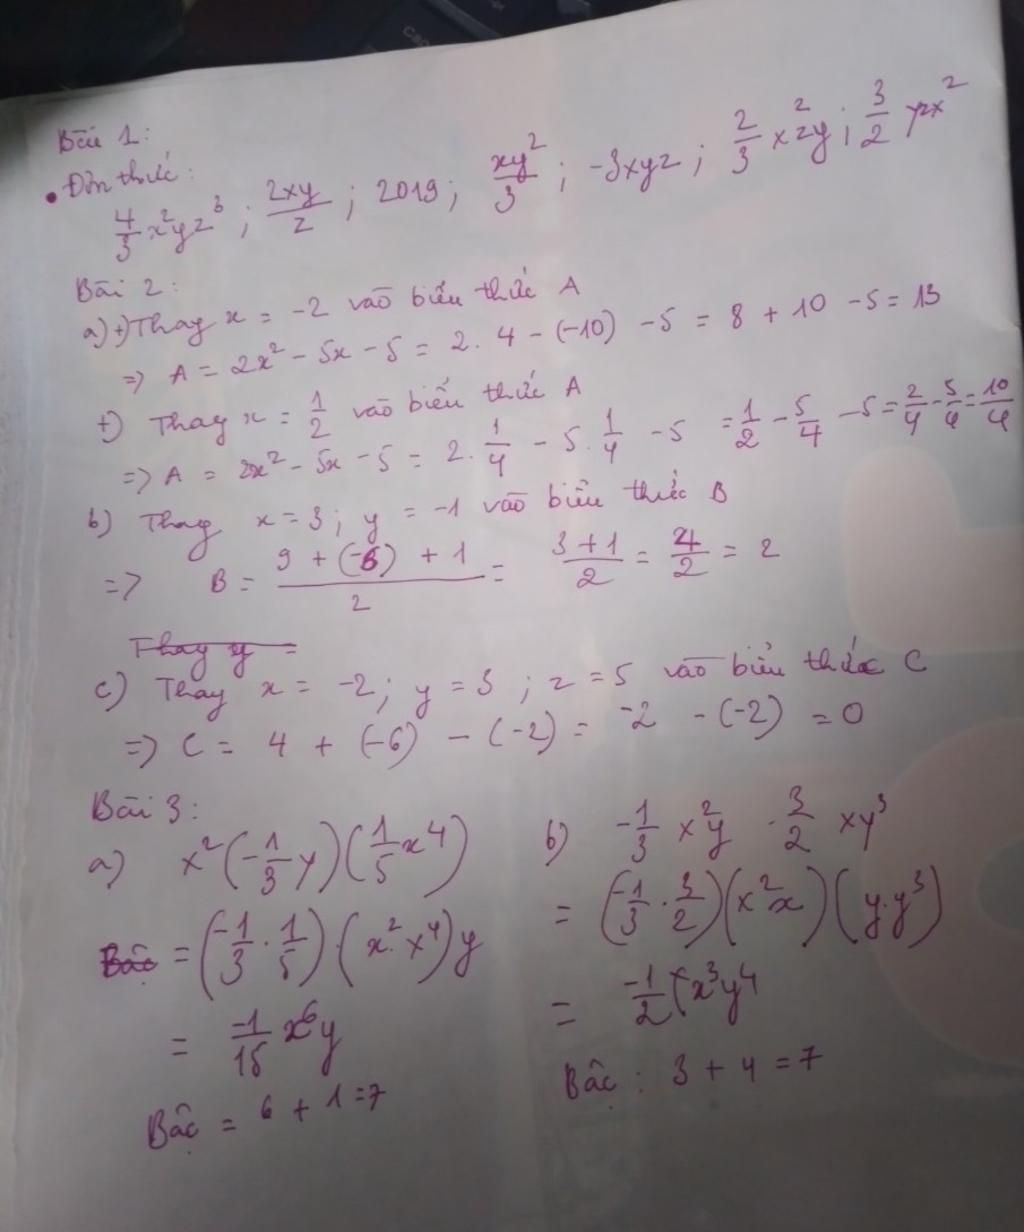 Bài 1:
• Đơn thức:
4/3 x²yz³ ; 2xy/2 ; 2019 ; xy²/3 ; -3xyz ; 2/3 x²zy ; 3/2 yzx²
Bài 2:
a) +) Thay x = -2 vào biểu thức A
=> A = 2x² - 5x - 5 = 2. 4 - (-10) - 5 = 8 + 10 - 5 = 13
+) Thay x = 1/2 vào biểu thức A
=> A = 2x² - 5x - 5 = 2. 1/4 - 5. 1/4 - 5 = 1/2 - 5/4 - 5 = 2/4 - 5/4 = 10/4
b) Thay x = 3 ; y = -1 vào biểu thức B
=> B = (9 + (-6) + 1)/2 = (3 + 1)/2 = 4/2 = 2
Thay y =
c) Thay x = -2 ; y = 3 ; z = 5 vào biểu thức C
=> C = 4 + (-6) - (-2) = -2 - (-2) = 0
Bài 3:
a) x² (-1/3 y) (1/5 x⁴)
Bậc = (-1/3 . 1/5) . (x² . x⁴) y
= -1/15 x⁶y
Bậc = 6 + 1 = 7
b) -1/3 x²y . 3/2 xy³
= (-1/3 . 3/2) (x²x) (y.y³)
= -1/2 (x³y⁴
Bậc : 3 + 4 = 7